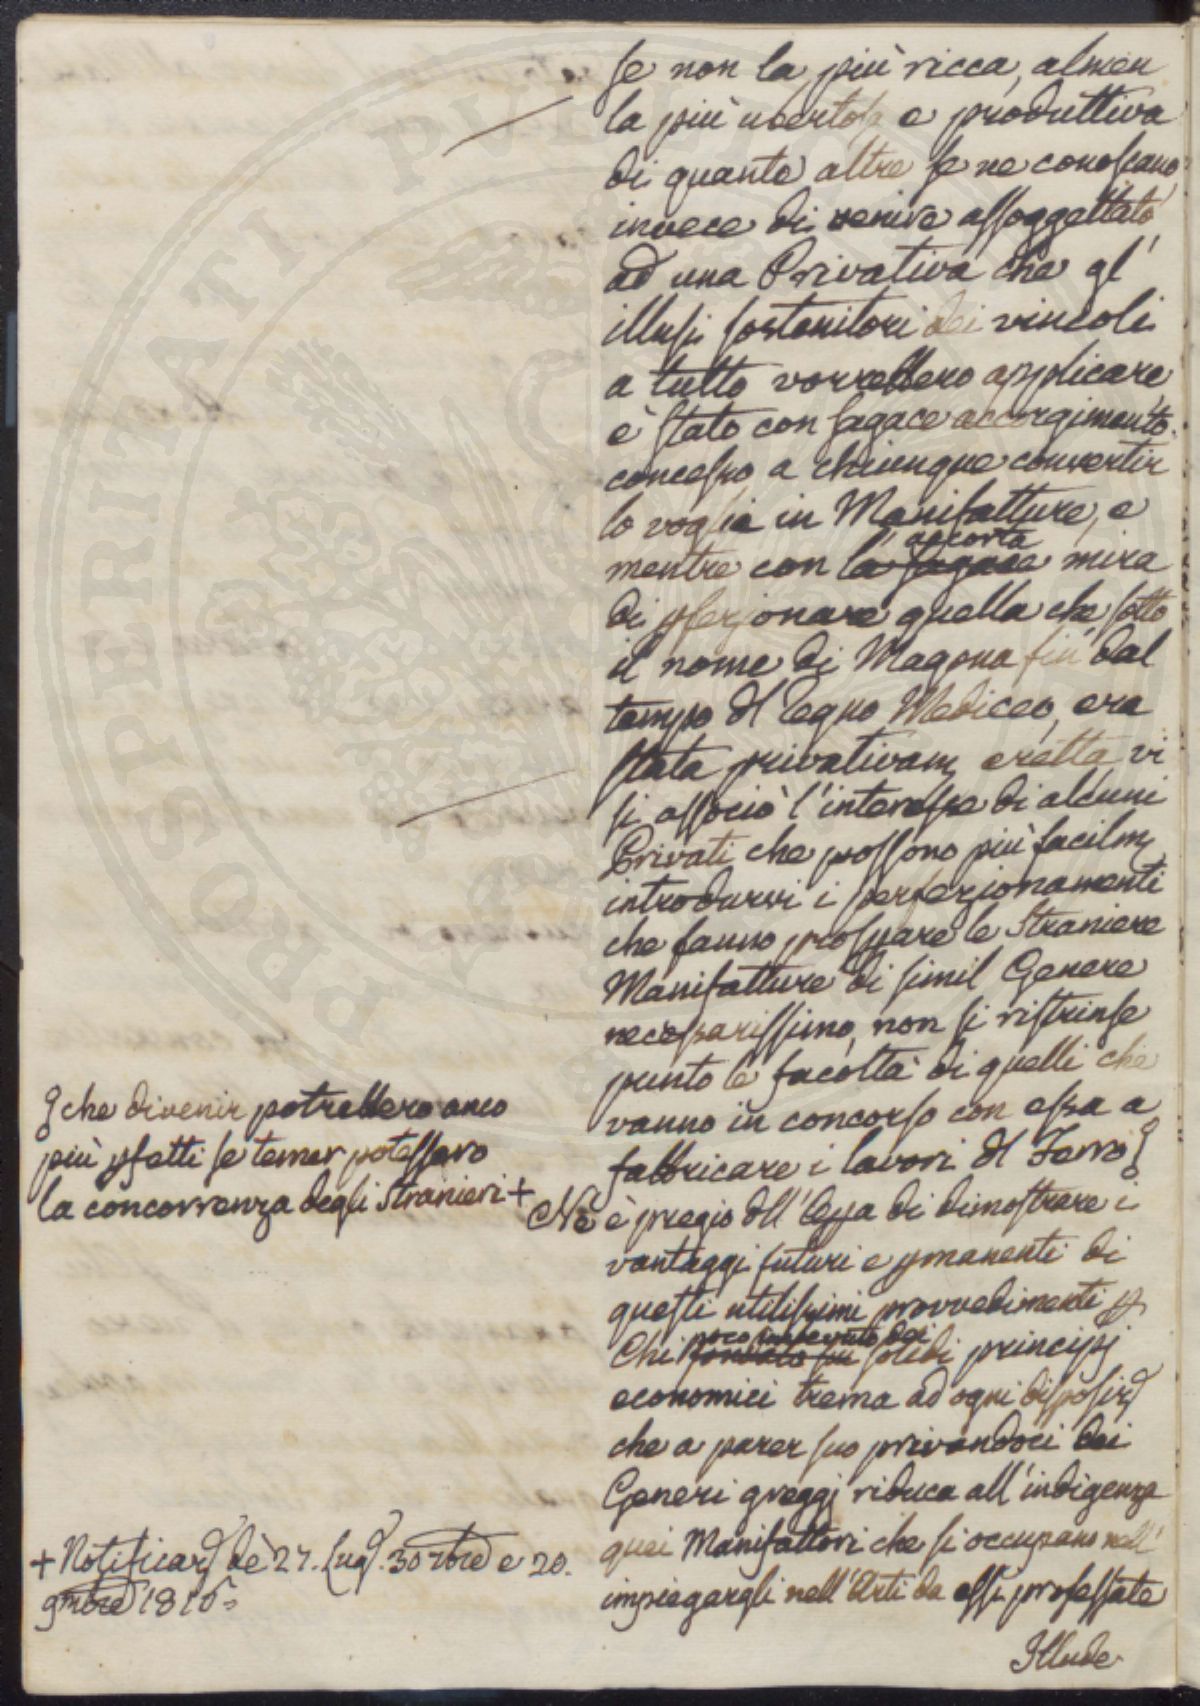 se non la più ricca, almen
la più ubertosa e produttiva
di quante altre se ne conoscano
invece di venire assoggettato
ad una Privativa che gl'
illusi sostenitori dei vincoli
a tutto vorrebbero applicare
è stato con sagace accorgimento
concesso a chiunque convertir
lo voglia in Manifatture, e
accorta
mentre con la sagace mira
di pfezionare quella che sotto
il nome di Magona fin dal
tempo dl Regno Mediceo, era
stata privativam eretta vi
si associò l'interesse di alcuni
Privati che possono più facilm
introdurvi i perfezionamenti
che fanno prosperare le Straniere
Manifatture di simil Genere
necessarissimo, non si ristrinse
punto le facoltà di quelli che
vanno in concorso con essa a
fabbricare i lavori dl Ferro
che divenir potrebbero anco
più pfetti se temer potessero
la concorrenza degli Stranieri +
Nè è pregio dll' opa di dimostrare i
vantaggi futuri e pmanenti di
questi utilissimi provvedimenti p
poco imbevuto dei
Chi fondato su solidi principj
economici trema ad ogni disposize
che a parer suo privandoci dei
Generi greggj riduca all'indigenza
quei Manifattori che si occupano nell'
impiegargli nell'Arti da essi professate
Illude
+ Notificaze de 27. Lugo. 30 7bre e 20.
9mbre 1816=
PROSPERITATI PUBLIC